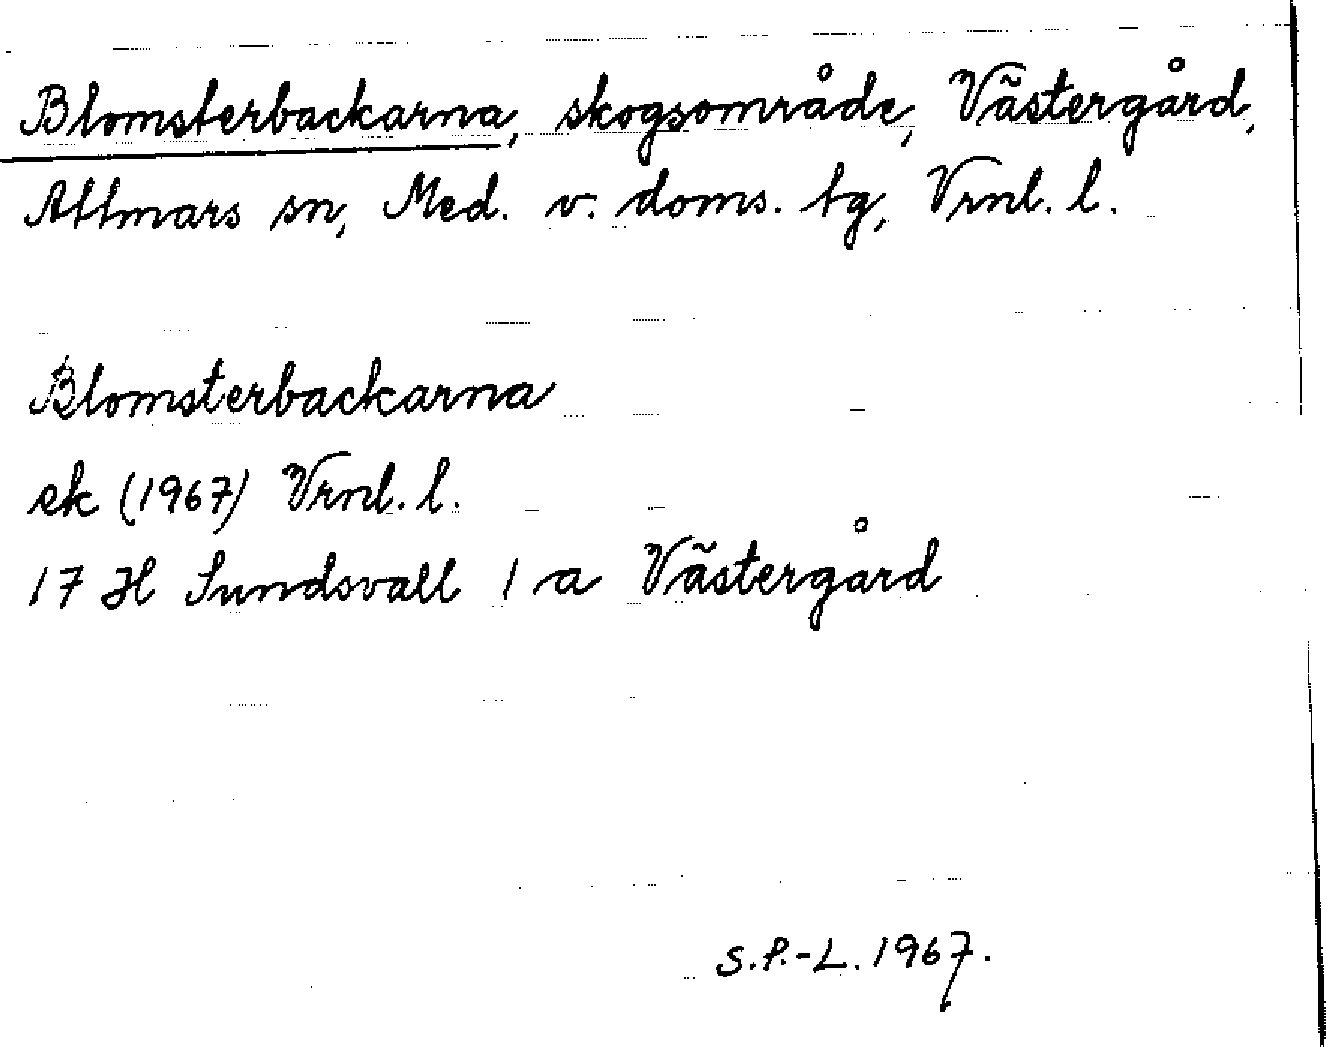 Blomsterbackarna, skogsområde, Västergård,
Attmars sn, Med. v. doms. tg, Vrnl. l.
Blomsterbackarna
ek (1967) Vrnl. l.
17 H Sundsvall 1 a Västergård
S.P.-L. 1967.